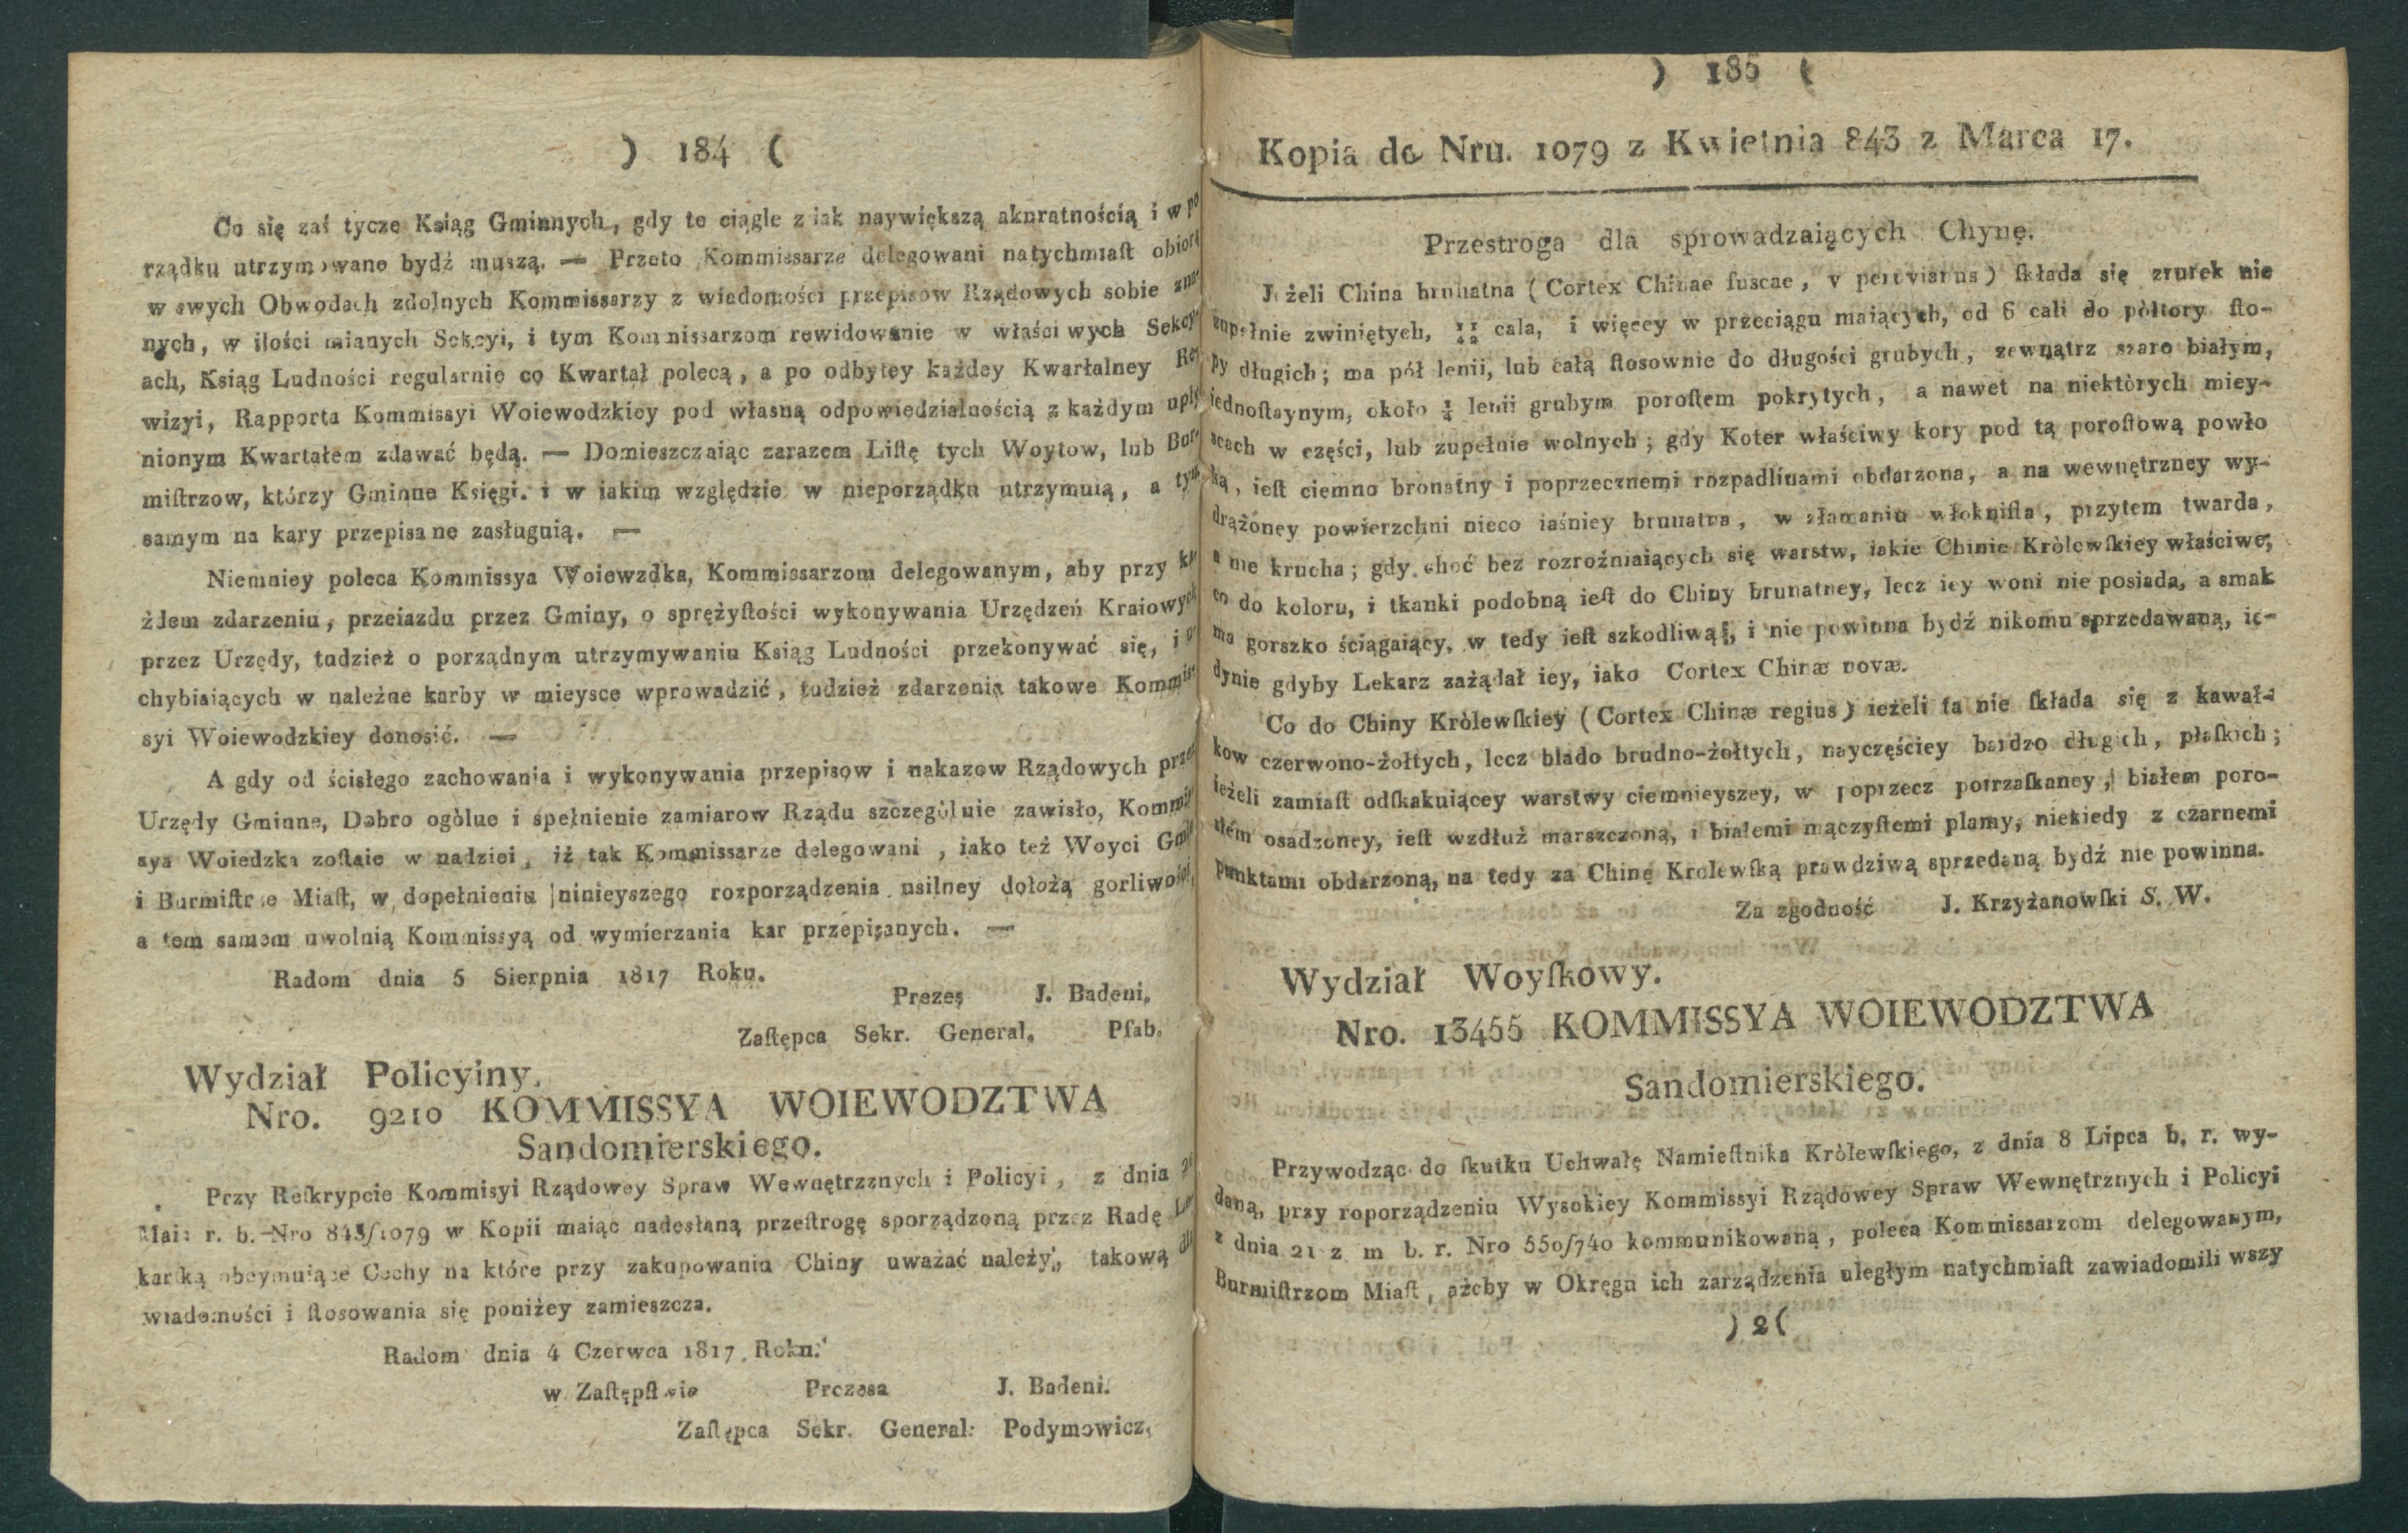 ) 184 (
Co się zaś tycze Ksiąg Gminnych, gdy te ciągle z iak naywiększą akuratnością i w po
rządku utrzymywane bydź muszą. — Przeto Kommissarze delegowani natychmiaſt obiorą
w swych Obwodach zdolnych Kommissarzy z wiadomości przepisow Rządowych sobie zna-
nych, w ilości mianych Sekcyi, i tym Kommissarzom rewidowanie w właści wych Sekcy-
ach, Ksiąg Ludności regularnie co Kwartał polecą, a po odbytey każdey Kwartalney Re-
wizyi, Rapporta Kommissyi Woiewodzkiey pod własną odpowiedzialnością z każdym upły
nionym Kwartałem zdawać będą. — Domieszczaiąc zarazem Liſtę tych Woytow, lub Bur-
miſtrzow, którzy Gminne Księgi. i w iakim względzie w nieporządku utrzymuią, a tym
samym na kary przepisane zasługuią. —
Niemniey poleca Kommissya Woiewzdka, Kommissarzom delegowanym, aby przy ka
żdem zdarzeniu, przeiazdu przez Gminy, o sprężyſtości wykonywania Urzędzeń Kraiowych
przez Urzędy, tudzież o porządnym utrzymywaniu Ksiąg Ludności przekonywać się, i u
chybiaiących w należne karby w mieysce wprowadzić, tudzież zdarzenia takowe Kommis-
syi Woiewodzkiey donosić. —
A gdy od ścisłego zachowania i wykonywania przepisow i nakazow Rządowych przez
Urzędy Gminne, Dobro ogòlne i spełnienie zamiarow Rządu szczegòlnie zawisło, Kommis
sya Woiedzka zoſtaie w nadziei, iż tak Kommissarze delegowani, iako też Woyci Gmin
i Burmiſtrze Miaſt, w dopełnieniu ninieyszego rozporządzenia usilney dołożą gorliwości,
a tem samem uwolnią Kommissyą od wymierzania kar przepisanych. —
Radom dnia 5 Sierpnia 1817 Roku.
Prezes J. Badeni,
Zaſtępca Sekr. General, Pſab.
Wydział Policyiny.
Nro. 9210 KOMMISSYA WOIEWODZTWA
Sandomierskiego.
Przy Reſkrypcie Kommisyi Rządowey Spraw Wewnętrzznych i Policyi, z dnia
Maia r. b. Nro 843/1079 w Kopii maiąc nadesłaną przeſtrogę sporządzoną przez Radę Le-
karſką obeymuiące Cechy na które przy zakupowaniu Chiny uważać należy, takową dla
wiadomości i ſtosowania się poniżey zamieszcza.
Radom dnia 4 Czerwca 1817 Roku.
w Zaſtępſtwie Prezesa J. Badeni.
Zaſtępca Sekr. General: Podymowicz,
) 185 (
Kopia do Nru. 1079 z Kwietnia 843 z Marca 17.
Przestroga dla sprowadzaiących Chynę.
Jeżeli China brunatna (Cortex Chinae fuscae, v peruvianus) ſkłada się zrurek nie
zupełnie zwiniętych, cala, i więcey w przeciągu maiących, od 6 cali do pòłtory ſto-
py długich; ma pół lenii, lub całą ſtosownie do długości grubych, zewnątrz szaro białym,
iednoſtaynym, około lenii grubym poroſtem pokrytych, a nawet na niektòrych miey-
scach w części, lub zupełnie wolnych; gdy Koter właściwy kory pod tą poroſtową powło
ką, ieſt ciemno bronatny i poprzecznemi rozpadlinami obdarzona, a na wewnętrzney wy-
drążoney powierzchni nieco iaśniey brunatna, w złamaniu włokniſta, przytem twarda,
a nie krucha; gdy choć bez rozrożniaiących się warstw, iakie Chinie Kròlewſkiey właściwe,
co do koloru, i tkanki podobną ieſt do Chiny brunatney, lecz iey woni nie posiada, a smak
ma gorszko ściągaiący, w tedy ieſt szkodliwą, i nie powinna bydź nikomu sprzedawaną, ie-
dynie gdyby Lekarz zażądał iey, iako Cortex Chinæ novæ.
Co do Chiny Kròlewſkiey (Cortex Chinæ regius) ieżeli ta nie ſkłada się z kawał-
kow czerwono-żołtych, lecz blado brudno-żołtych, nayczęściey bardzo długich, płaſkich;
ieżeli zamiaſt odſkakuiącey warstwy ciemnieyszey, w poprzecz potrzaſkaney, białem poro-
ſtém osadzoney, ieſt wzdłuż marszczoną, i białemi mączyſtemi plamy, niekiedy z czarnemi
punktami obdarzoną, na tedy za Chinę Krolewſką prawdziwą sprzedaną bydź nie powinna.
Za zgodność J. Krzyżanowſki S. W.
Wydział Woyſkowy.
Nro. 13455 KOMMISSYA WOIEWODZTWA
Sandomierskiego.
Przywodząc do ſkutku Uchwałę Namieſtnika Kròlewſkiego, z dnia 8 Lipca b. r. wy-
daną, przy roporządzeniu Wysokiey Kommissyi Rządowey Spraw Wewnętrznych i Policyi
z dnia 21 z m b. r. Nro 550/740 kommunikowaną, poleca Kommissarzom delegowanym,
Burmiſtrzom Miaſt, ażeby w Okręgu ich zarządzenia uległym natychmiaſt zawiadomili wszy
) 2 (